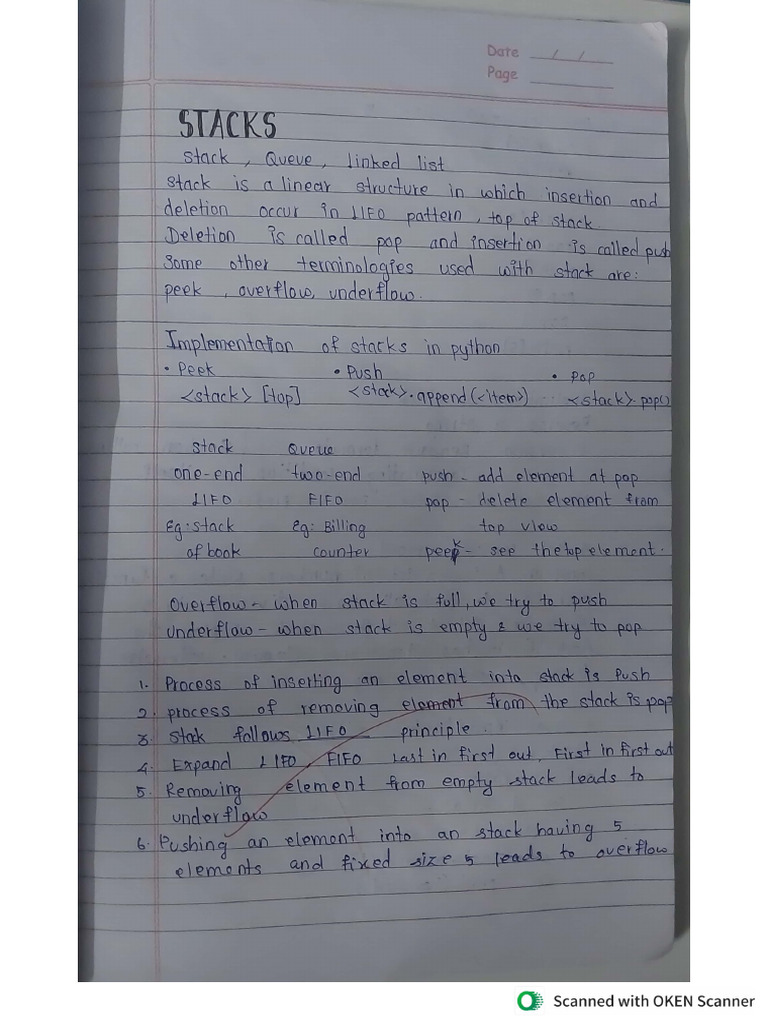 Date / /
Page
STACKS
Stack , Queue , linked list
Stack is a linear structure in which insertion and
deletion occur in LIFO pattern, top of stack.
Deletion is called pop and insertion is called push
Some other terminologies used with stack are:
peek , overflow, underflow.
Implementation of stacks in python
• Peek • Push • Pop
<stack> [top] <stack>.append(<item>) <stack>.pop()
Stack Queue
one-end two-end push - add element at pop
LIFO FIFO pop - delete element from
Eg: stack Eg: Billing top view
of book counter peek - see the top element.
Overflow - when stack is full, we try to push
Underflow - when stack is empty & we try to pop
1. Process of inserting an element into stack is Push
2. process of removing element from the stack is pop
3. Stack follows LIFO principle.
4. Expand LIFO, FIFO Last in first out, First in first out
5. Removing element from empty stack leads to
underflow
6. Pushing an element into an stack having 5
elements and fixed size 5 leads to overflow
Scanned with OKEN Scanner